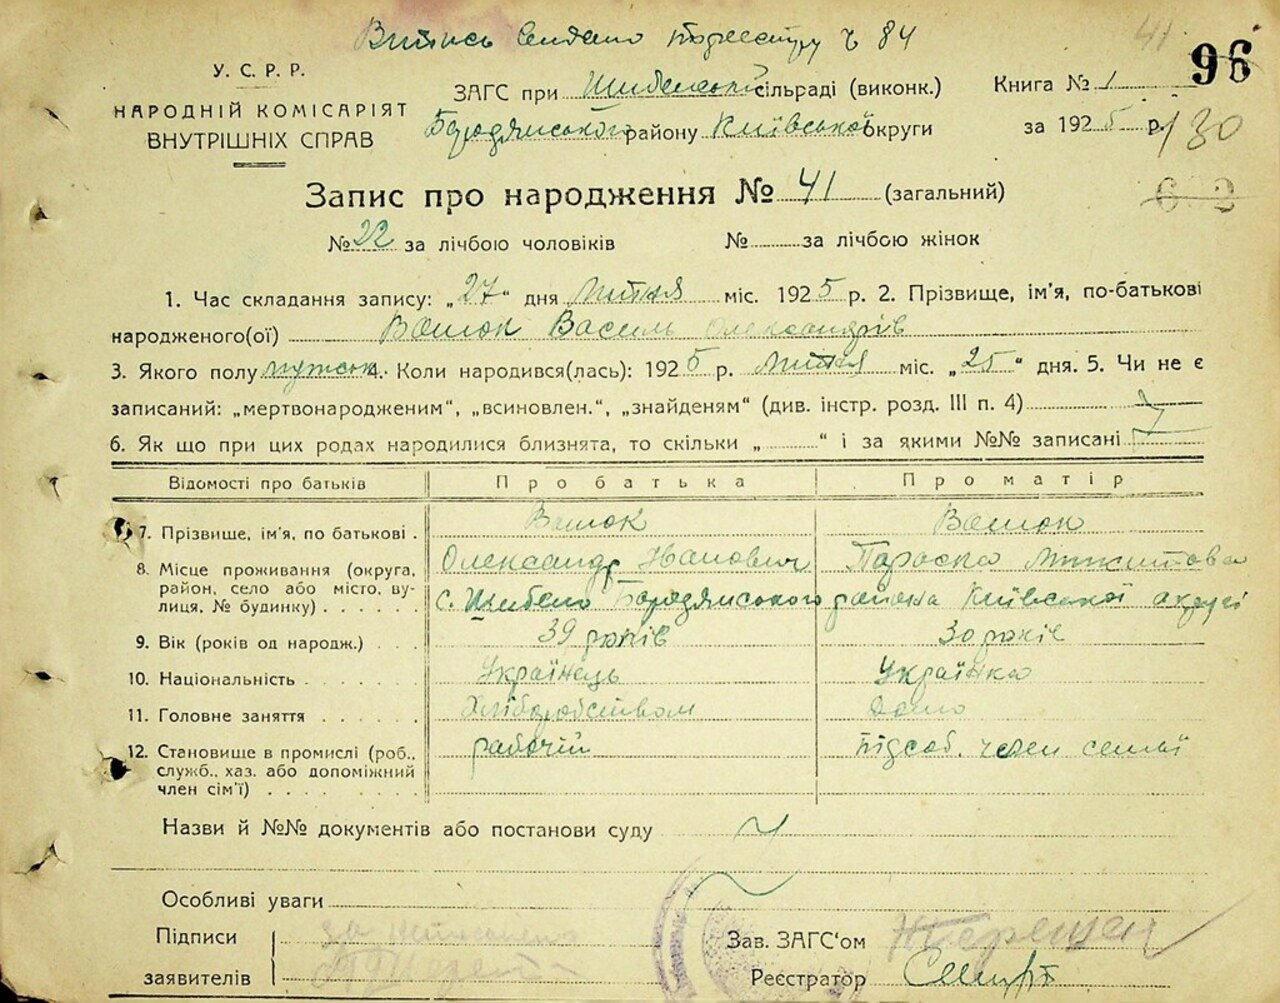 Витись Сендано по реестру ч 84
41
96
У. С. Р. Р.
НАРОДНІЙ КОМІСАРІЯТ
ВНУТРІШНІХ СПРАВ
ЗАГС при Шибенській сільраді (виконк.)
Книга № 1
Бородямського району Київської округи
за 1925 р.
130
Запис про народження № 41 (загальний)
6 2
№ 22 за лічбою чоловіків № за лічбою жінок
1. Час складання запису: „27“ дня липня міс. 1925 р. 2. Прізвище, ім'я, по-батькові
народженого(ої) Василь Олександрів
3. Якого полу мужськ. 4. Коли народився(лась): 1925 р. липня міс. „25“ дня. 5. Чи не є
записаний: „мертвонародженим“, „всиновлен.“, „знайденям“ (див. інстр. розд. III п. 4)
6. Як що при цих родах народилися близнята, то скільки „ “ і за якими №№ записані
Відомості про батьків Про батька Про матір
7. Прізвище, ім'я, по батькові .
Олександр Іванович Параска Микитова
8. Місце проживання (округа, район, село або місто, вулиця, № будинку) . . . . . .
с. Шибено Бородямського района Київської округі
9. Вік (років од народж.) . . . 39 років 30 років
10. Національність . . . . . . . Українець Українка
11. Головне заняття . . . . . . Хліборобством домо
12. Становище в промислі (роб., служб., хаз. або допоміжний член сім'ї) . . . . . . . .
рабочій підсоб. член семьї
Назви й №№ документів або постанови суду
Особливі уваги
Підписи
заявителів
Зав. ЗАГС'ом
Реєстратор